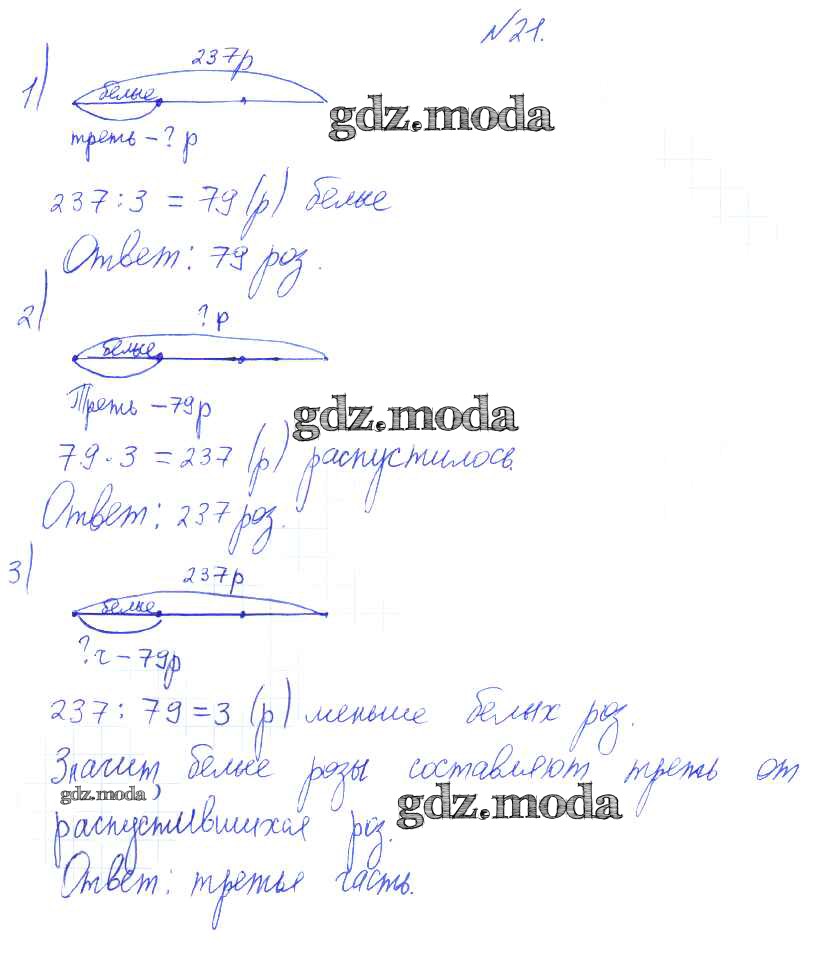 №21.
1) 237р
белые
треть – ? р
237 : 3 = 79 (р) белые
Ответ: 79 роз.
2) ? р
белые
Треть – 79р
79 · 3 = 237 (р) распустилось.
Ответ: 237 роз.
3) 237р
белые
? ч – 79р
237 : 79 = 3 (р) меньше белых роз.
Значит, белые розы составляют треть от
распустившихся роз.
Ответ: третья часть.
gdz.moda
gdz.moda
gdz.moda
gdz.moda